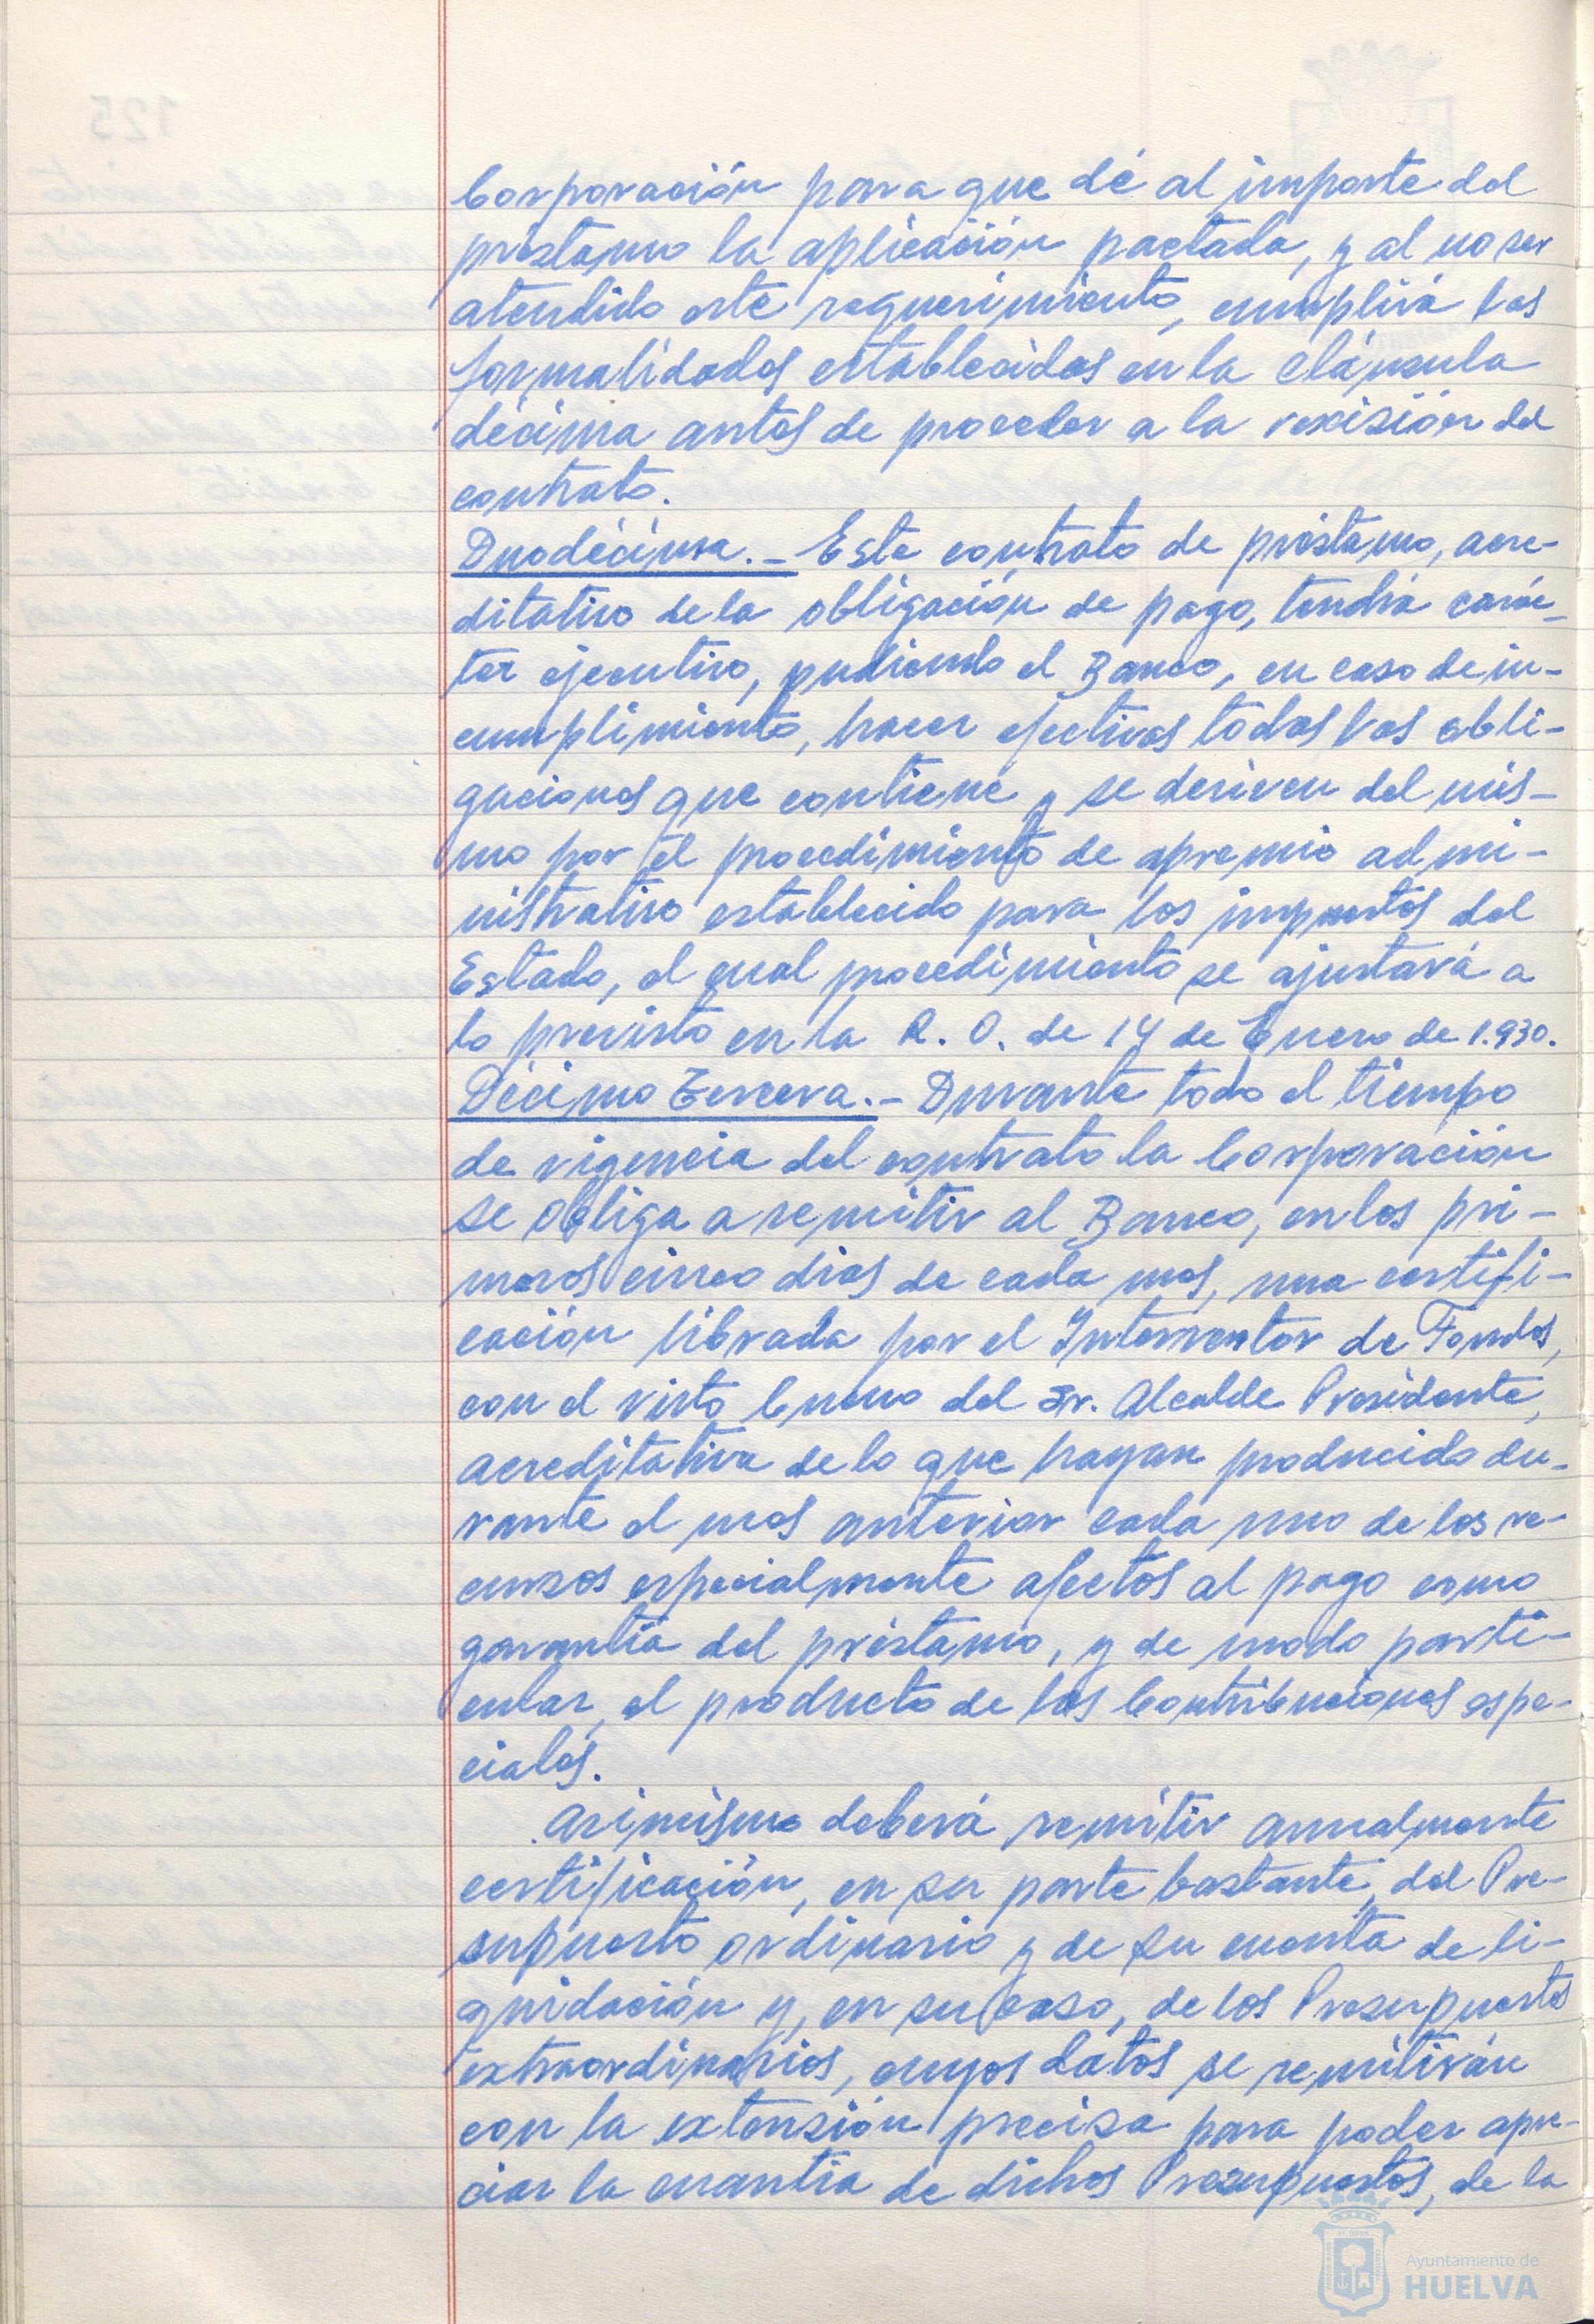 Corporación para que dé al importe del
préstamo la aplicación pactada, y al no ser
atendido este requerimiento, cumplirá las
formalidades establecidas en la cláusula
décima antes de proceder a la rescisión del
contrato.
Duodécima.- Este contrato de préstamo, acre-
ditativo de la obligación de pago, tendrá carác-
ter ejecutivo, pudiendo el Banco, en caso de in-
cumplimiento, hacer efectivas todas las obli-
gaciones que contiene y se deriven del mis-
mo por el procedimiento de apremio admi-
nistrativo establecido para los impuestos del
Estado, el cual procedimiento se ajustará a
lo previsto en la R. O. de 14 de Enero de 1.930.
Décimo Tercera.- Durante todo el tiempo
de vigencia del contrato la Corporación
se obliga a remitir al Banco, en los pri-
meros cinco dias de cada mes, una certifi-
cación librada por el Interventor de Fondos,
con el visto bueno del Sr. Alcalde Presidente,
acreditativa de lo que hayan producido du-
rante el mes anterior cada uno de los re-
cursos especialmente afectos al pago como
garantía del préstamo, y de modo parti-
cular, el producto de las Contribuciones espe-
ciales.
Asimismo deberá remitir anualmente
certificación, en su parte bastante, del Pre-
supuesto ordinario y de su cuenta de li-
quidación y, en su caso, de los Presupuestos
extraordinarios, cuyos datos se remitirán
con la extensión precisa para poder apre-
ciar la cuantía de dichos Presupuestos, de la
Ayuntamiento de
HUELVA